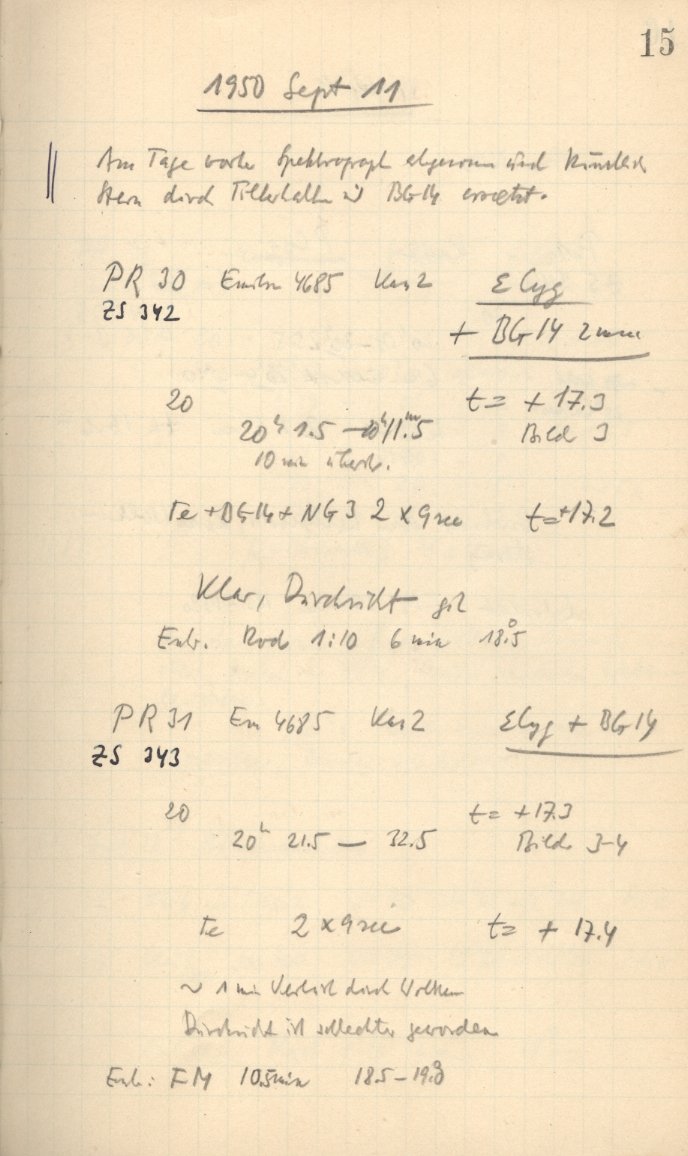 15
1950 Sept 11
Am Tage wurde Spektrograph abgenommen und künstlich
Stern durch BG14 ersetzt.
PR 30 Emulsion 4685 Kas 2 ε Cyg
ZS 342 + BG 14 2 mm
20 t = + 17.3
20h 1.5 – 20h 11m.5 Bild 3
10 min
Te + BG14 + NG 3 2 x 9 sec t = +17.2
Klar, Durchsicht gut
Entw. Rod 1:10 6 min 18°.5
PR 31 Em 4685 Kas 2 ε Cyg + BG 14
ZS 343
20 t = +17.3
20h 21.5 – 32.5 Bild 3-4
Te 2 x 9 sec t = + 17.4
~ 1 min Verlust durch Wolken
Durchsicht ist schlechter geworden
Entw: FM 10.5 min 18.5 – 19.0